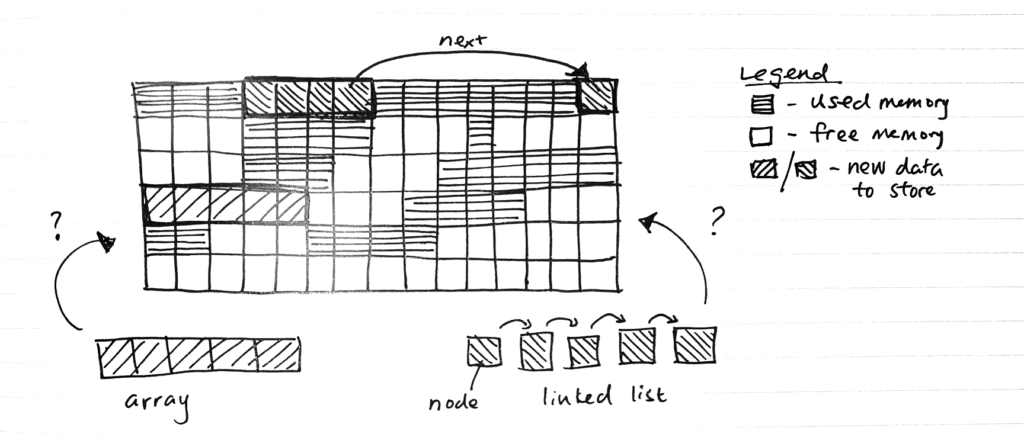 next
Legend
- used memory
- free memory
/ - new data
to store
?
?
array
node
linked list